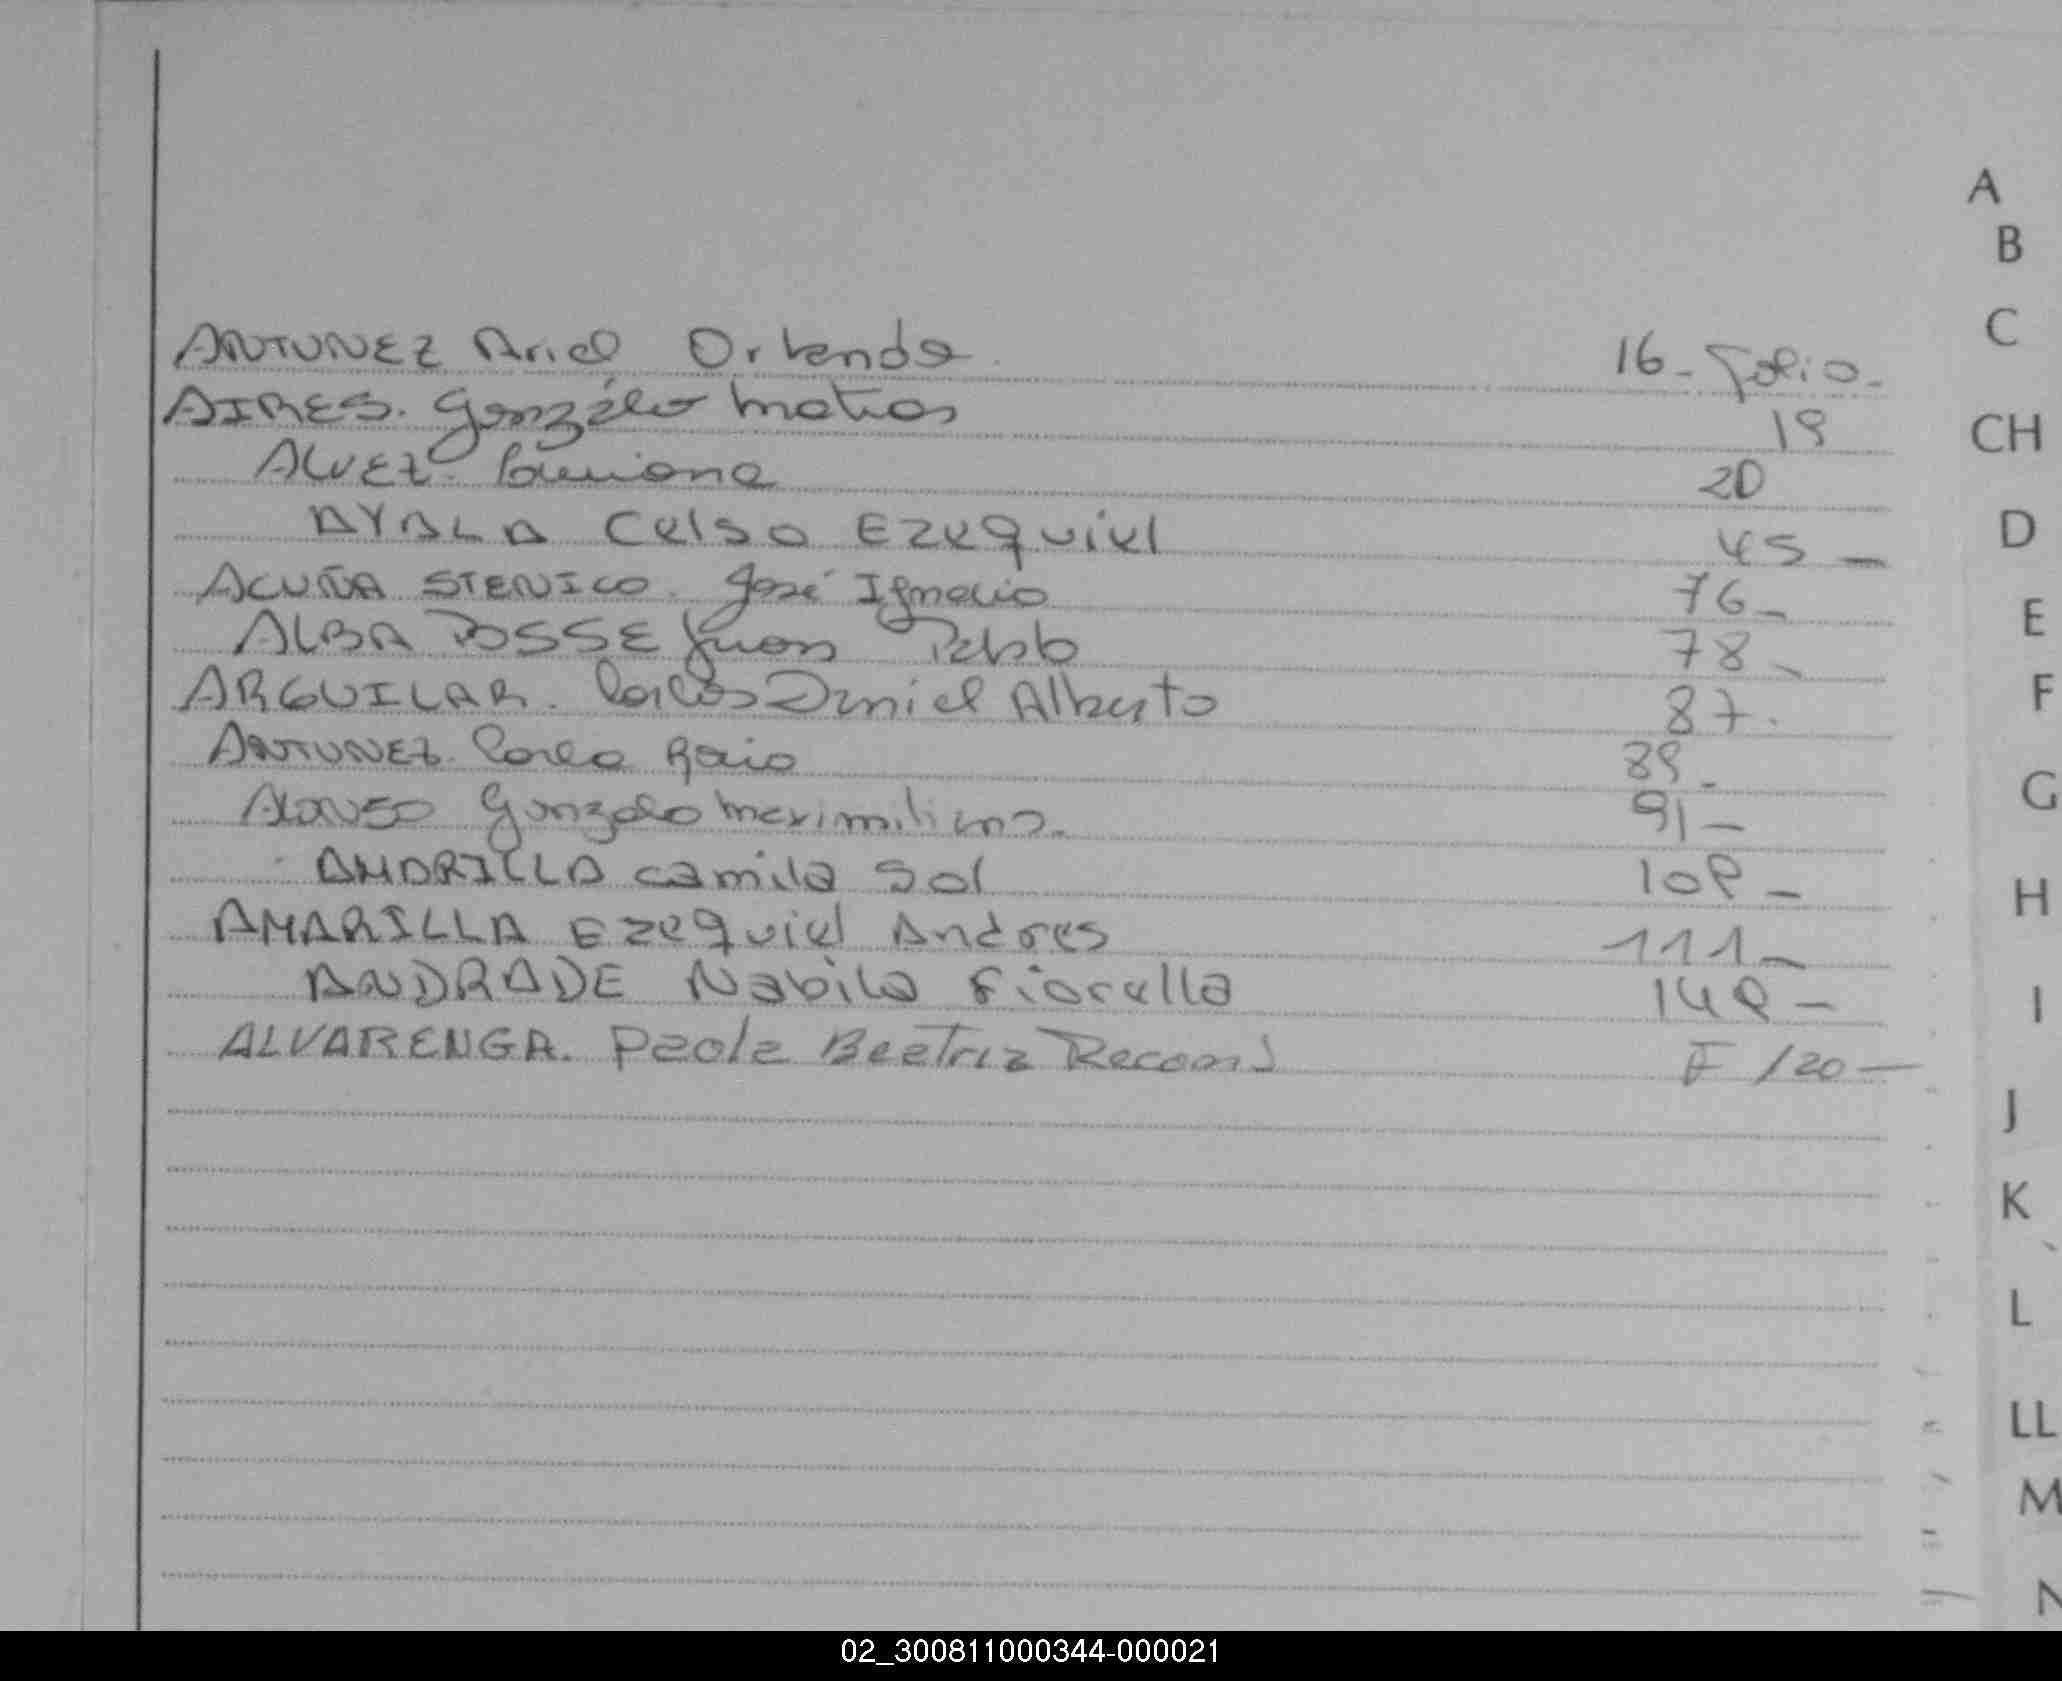 ANTUNEZ Ariel Orlando 16- Folio-
AIRES. Gonzálo Matias 19
ALVEZ. 20
AYALA Celso EZequiel 45 -
ACUÑA STENICO. José Ignacio 76-
ALBA POSSE Juan Pablo 78-
ARGUILAR. Carlos Daniel Alberto 87.
ANTUNEZ. Carla 89-
ALONSO Gonzalo Maximiliano. 91-
AMARILLA camila Sol 109-
AMARILLA EZequiel Andres 111-
ANDRADE Nabila Fiorella 149-
ALVARENGA. Paola Beatriz F 120-
A
B
C
CH
D
E
F
G
H
I
J
K
L
LL
M
N
02_300811000344-000021